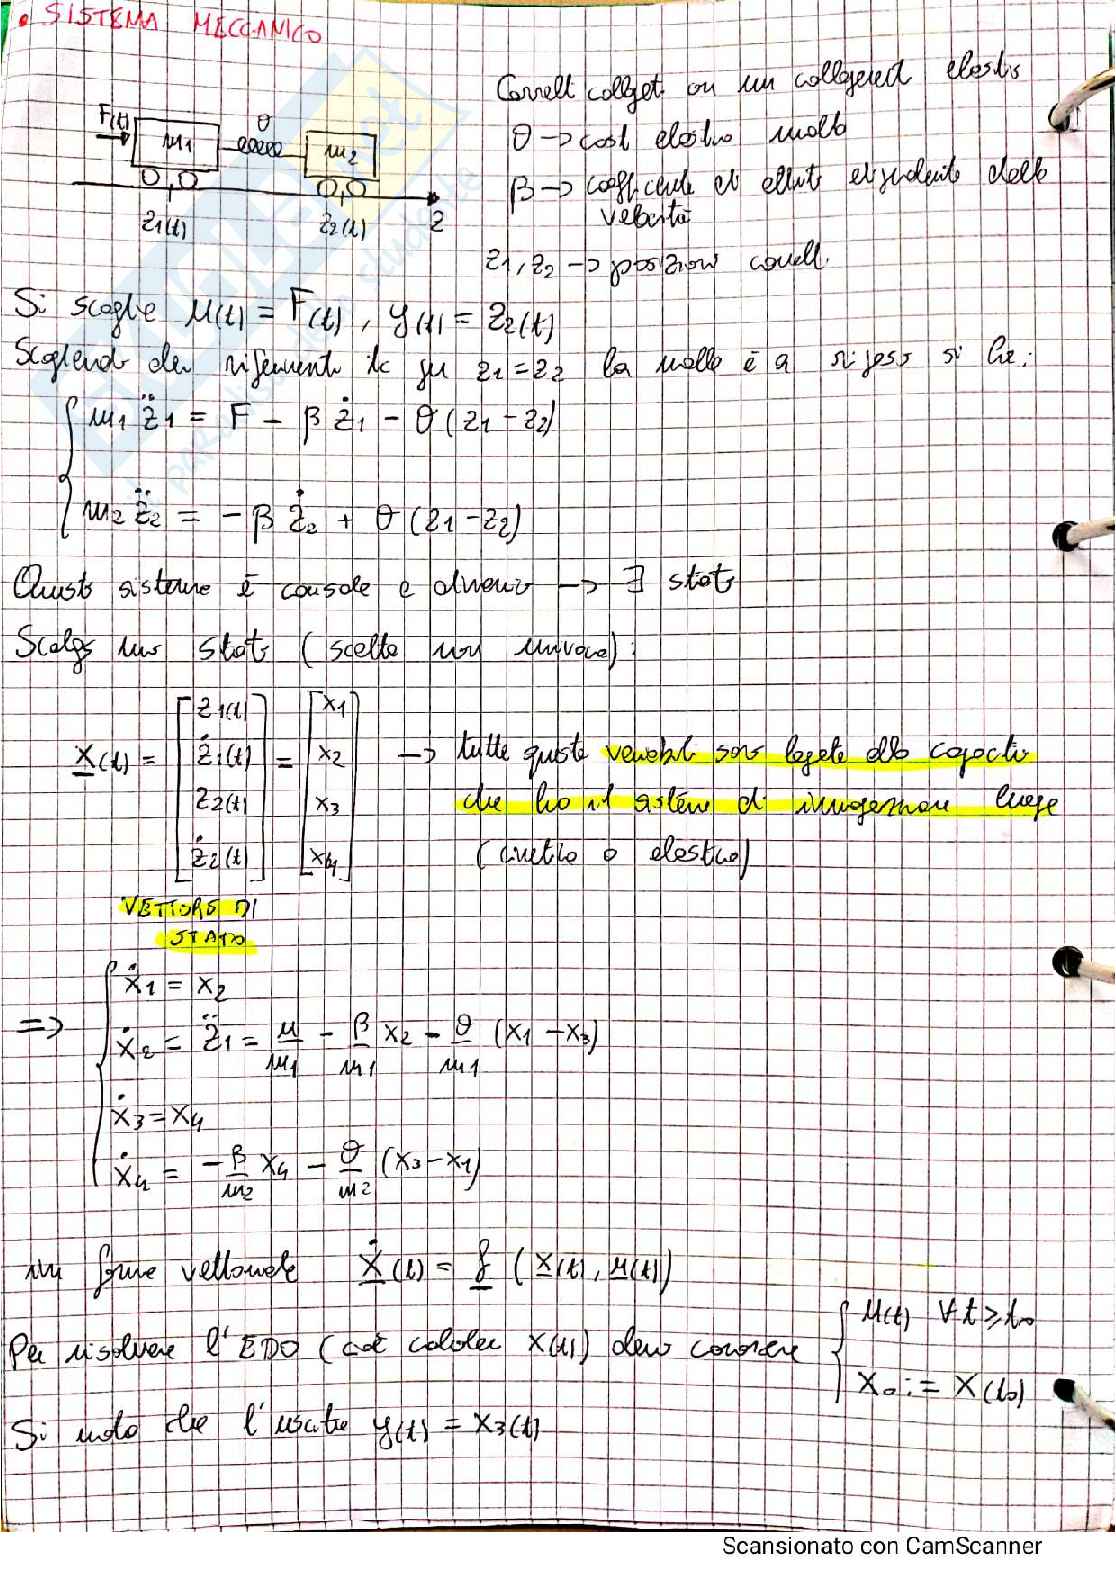 • SISTEMA MECCANICO
Carrelli collegati con un collegamento elastico
F(t) m1 θ m2
θ -> cost elastica molla
β -> coefficiente di attrito dipendente dalla
velocità
z1(t) z2(t) z
z1, z2 -> posizioni carrelli
Si sceglie u(t) = F(t), y(t) = z2(t)
Scegliendo dei riferimenti tc per z1 = z2 la molla è a riposo si ha:
m1 z̈1 = F - β ż1 - θ(z1 - z2)
m2 z̈2 = -β ż2 + θ(z1 - z2)
Questo sistema è causale e dinamico -> ∃ stato
Scelgo uno stato (scelta non univoca):
x(t) = [z1(t) ż1(t) z2(t) ż2(t)] = [x1 x2 x3 x4] -> tutte queste variabili sono legate alla capacità
che ha il sistema di immagazzinare energia
(cinetica o elastica)
VETTORE DI
STATO
=> ẋ1 = x2
ẋ2 = z̈1 = u/m1 - β/m1 x2 - θ/m1 (x1 - x3)
ẋ3 = x4
ẋ4 = -β/m2 x4 - θ/m2 (x3 - x1)
in forma vettoriale ẋ(t) = f (x(t), u(t))
Per risolvere l'EDO (cioè calcolare x(t)) devo conoscere { u(t) ∀t ≥ t0
x0 := x(t0)
Si nota che l'uscita y(t) = x3(t)
Scansionato con CamScanner